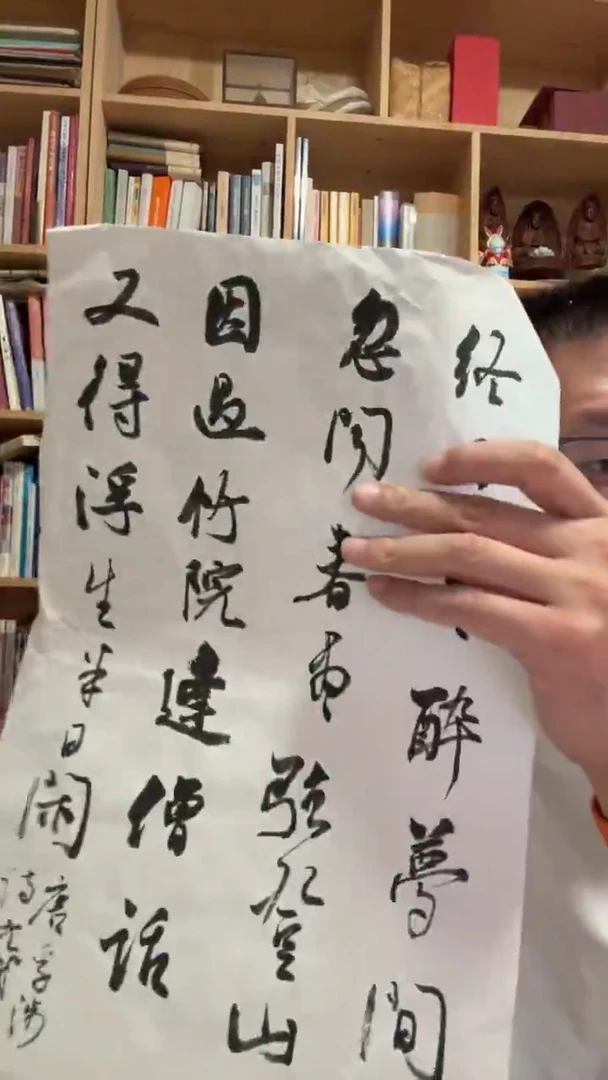 终 醉夢間
忽闻春尽强登山
因過竹院逢僧話
又得浮生半日閑
唐李涉
诗